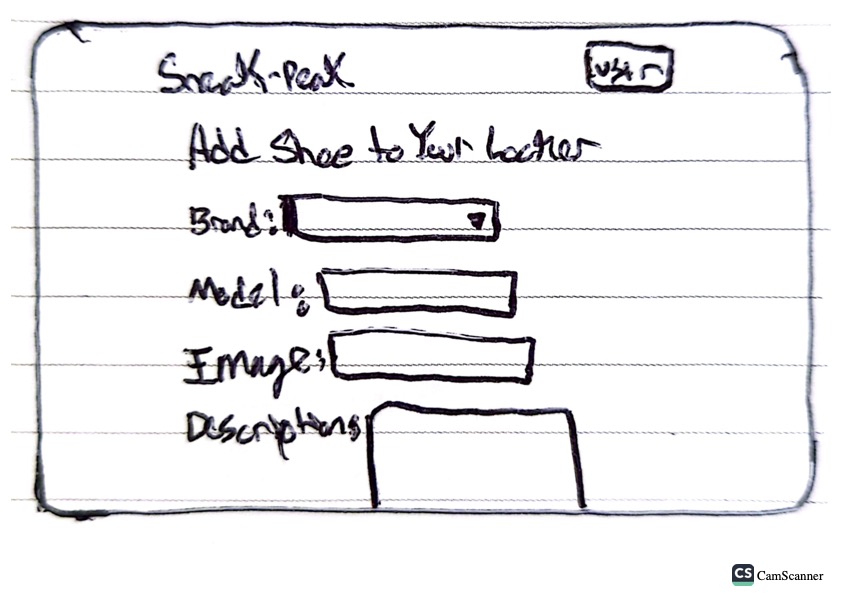 Sneak-Peak
user
Add Shoe to Your Locker
Brand:
Model:
Image:
Description:
CS CamScanner